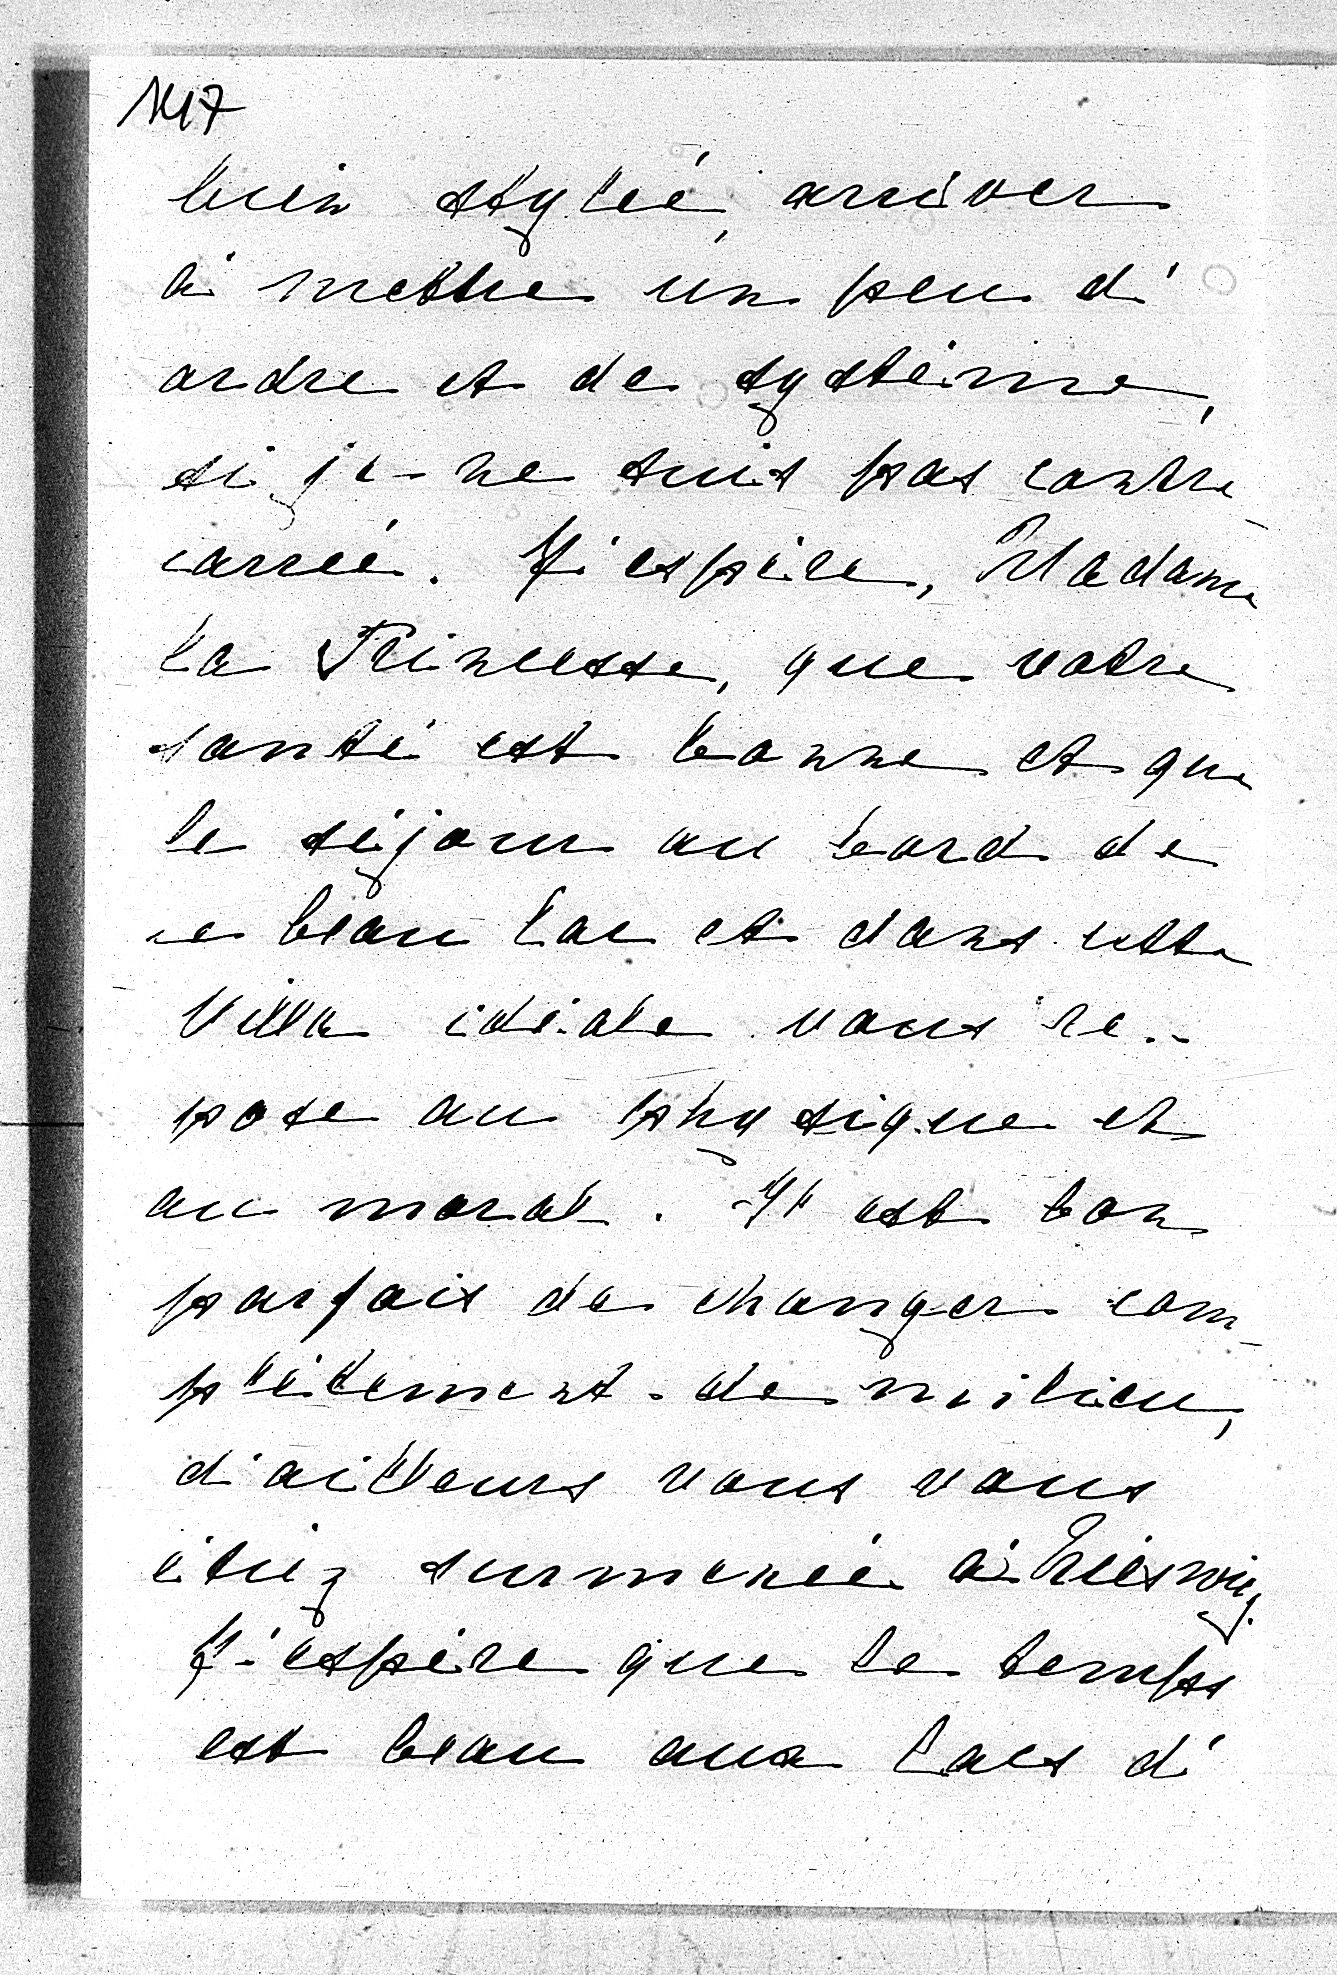 147
bien stylée, arriver
à mettre un peu d'
ordre et de système,
si je ne suis pas contre-
carrée. J'espère, Madame
la Princesse, que votre
santé est bonne et que
le séjour au bord de
ce beau lac et dans cette
Villa idéale vous re-
pose au physique et
au moral. Il est bon
parfois de changer com-
plètement de milieu,
d'ailleurs vous vous
étiez surmenée à Nieswiez.
J'espère que le temps
est beau aux lacs d'